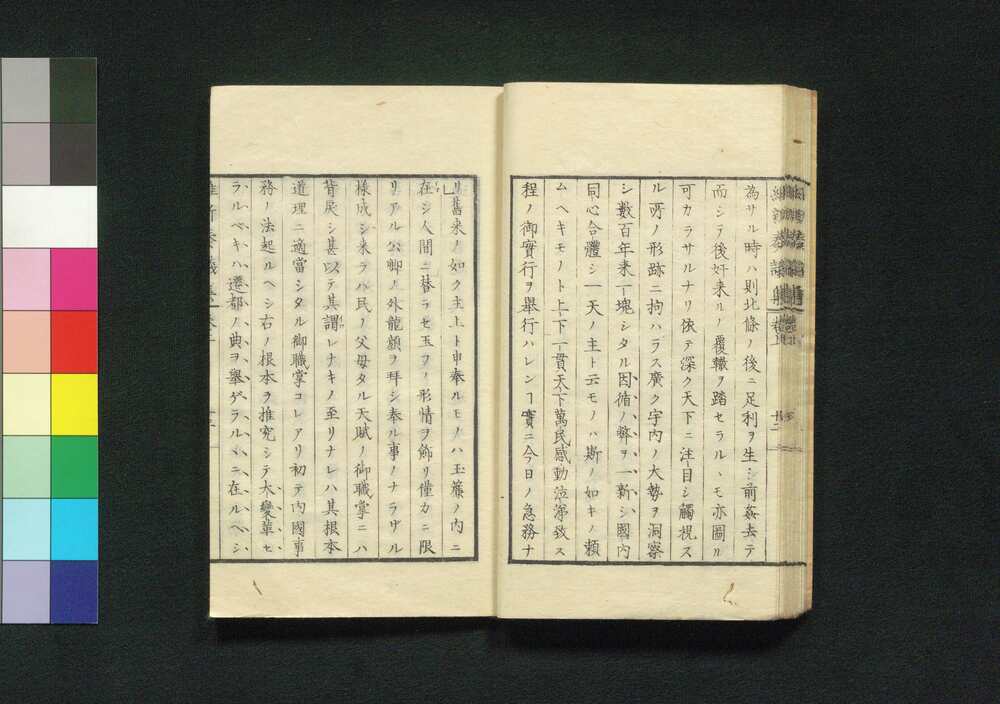 為サル時ハ則北條ノ後ニ足利ヲ生シ前姦去テ
而シテ後奸来ルノ覆轍ヲ踏セラルヽモ亦圖ル
可カラサルナリ依テ深ク天下ニ注目シ觸視ス
ル所ノ形跡ニ拘ハラス廣ク宇内ノ大勢ヲ洞察
シ数百年来一塊シタル因循ノ弊ヲ一新シ國内
同心合體シ一天ノ主ト云モノハ斯ノ如キノ頼
ムヘキモノト上下一貫天下萬民感動泣涕致ス
程ノ御實行ヲ舉行ハレンヿ實ニ今日ノ急務ナ
リ舊来ノ如ク主上ト申奉ルモノハ玉簾ノ内ニ
在シ人間ニ替ラセ玉フノ形情ヲ飾リ僅カニ限
リアル公卿ノ外龍顔ヲ拜シ奉ル事ノナラザル
様成シ来ラハ民ノ父母タル天賦ノ御職掌ニハ
背戻シ甚以テ其謂レナキノ至リナレハ其根本
道理ニ適當シタル御職掌コレアリ初テ内國事
務ノ法起ルヘシ右ノ根本ヲ推究シテ大變革セ
ラルベキハ遷都ノ典ヲ舉ゲラルヽニ在ルベシ